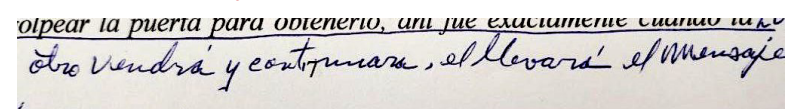 olpear la puerta para obtenerlo, ahí fue exactamente cuando
otro vendrá y continuara, el llevará el mensaje